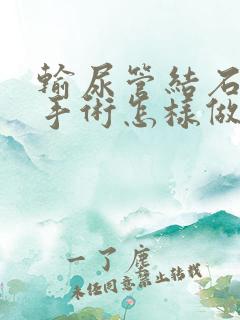 輸尿管結石
手術怎樣做
一了塵
未经同意禁止转载